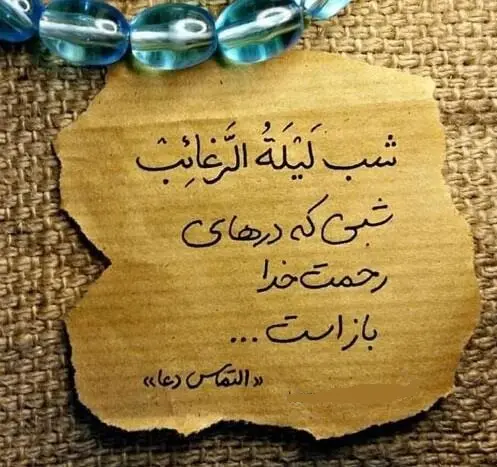 شب لَیْلَةُ الرَّغائِبْ
شبی که درهای
رحمت خدا
باز است ...
«التماس دعا»